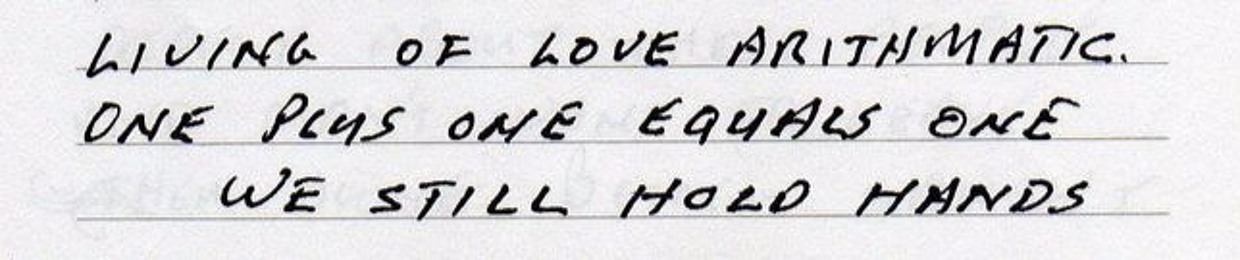 LIVING OF LOVE ARITHMATIC.
ONE PLUS ONE EQUALS ONE
WE STILL HOLD HANDS